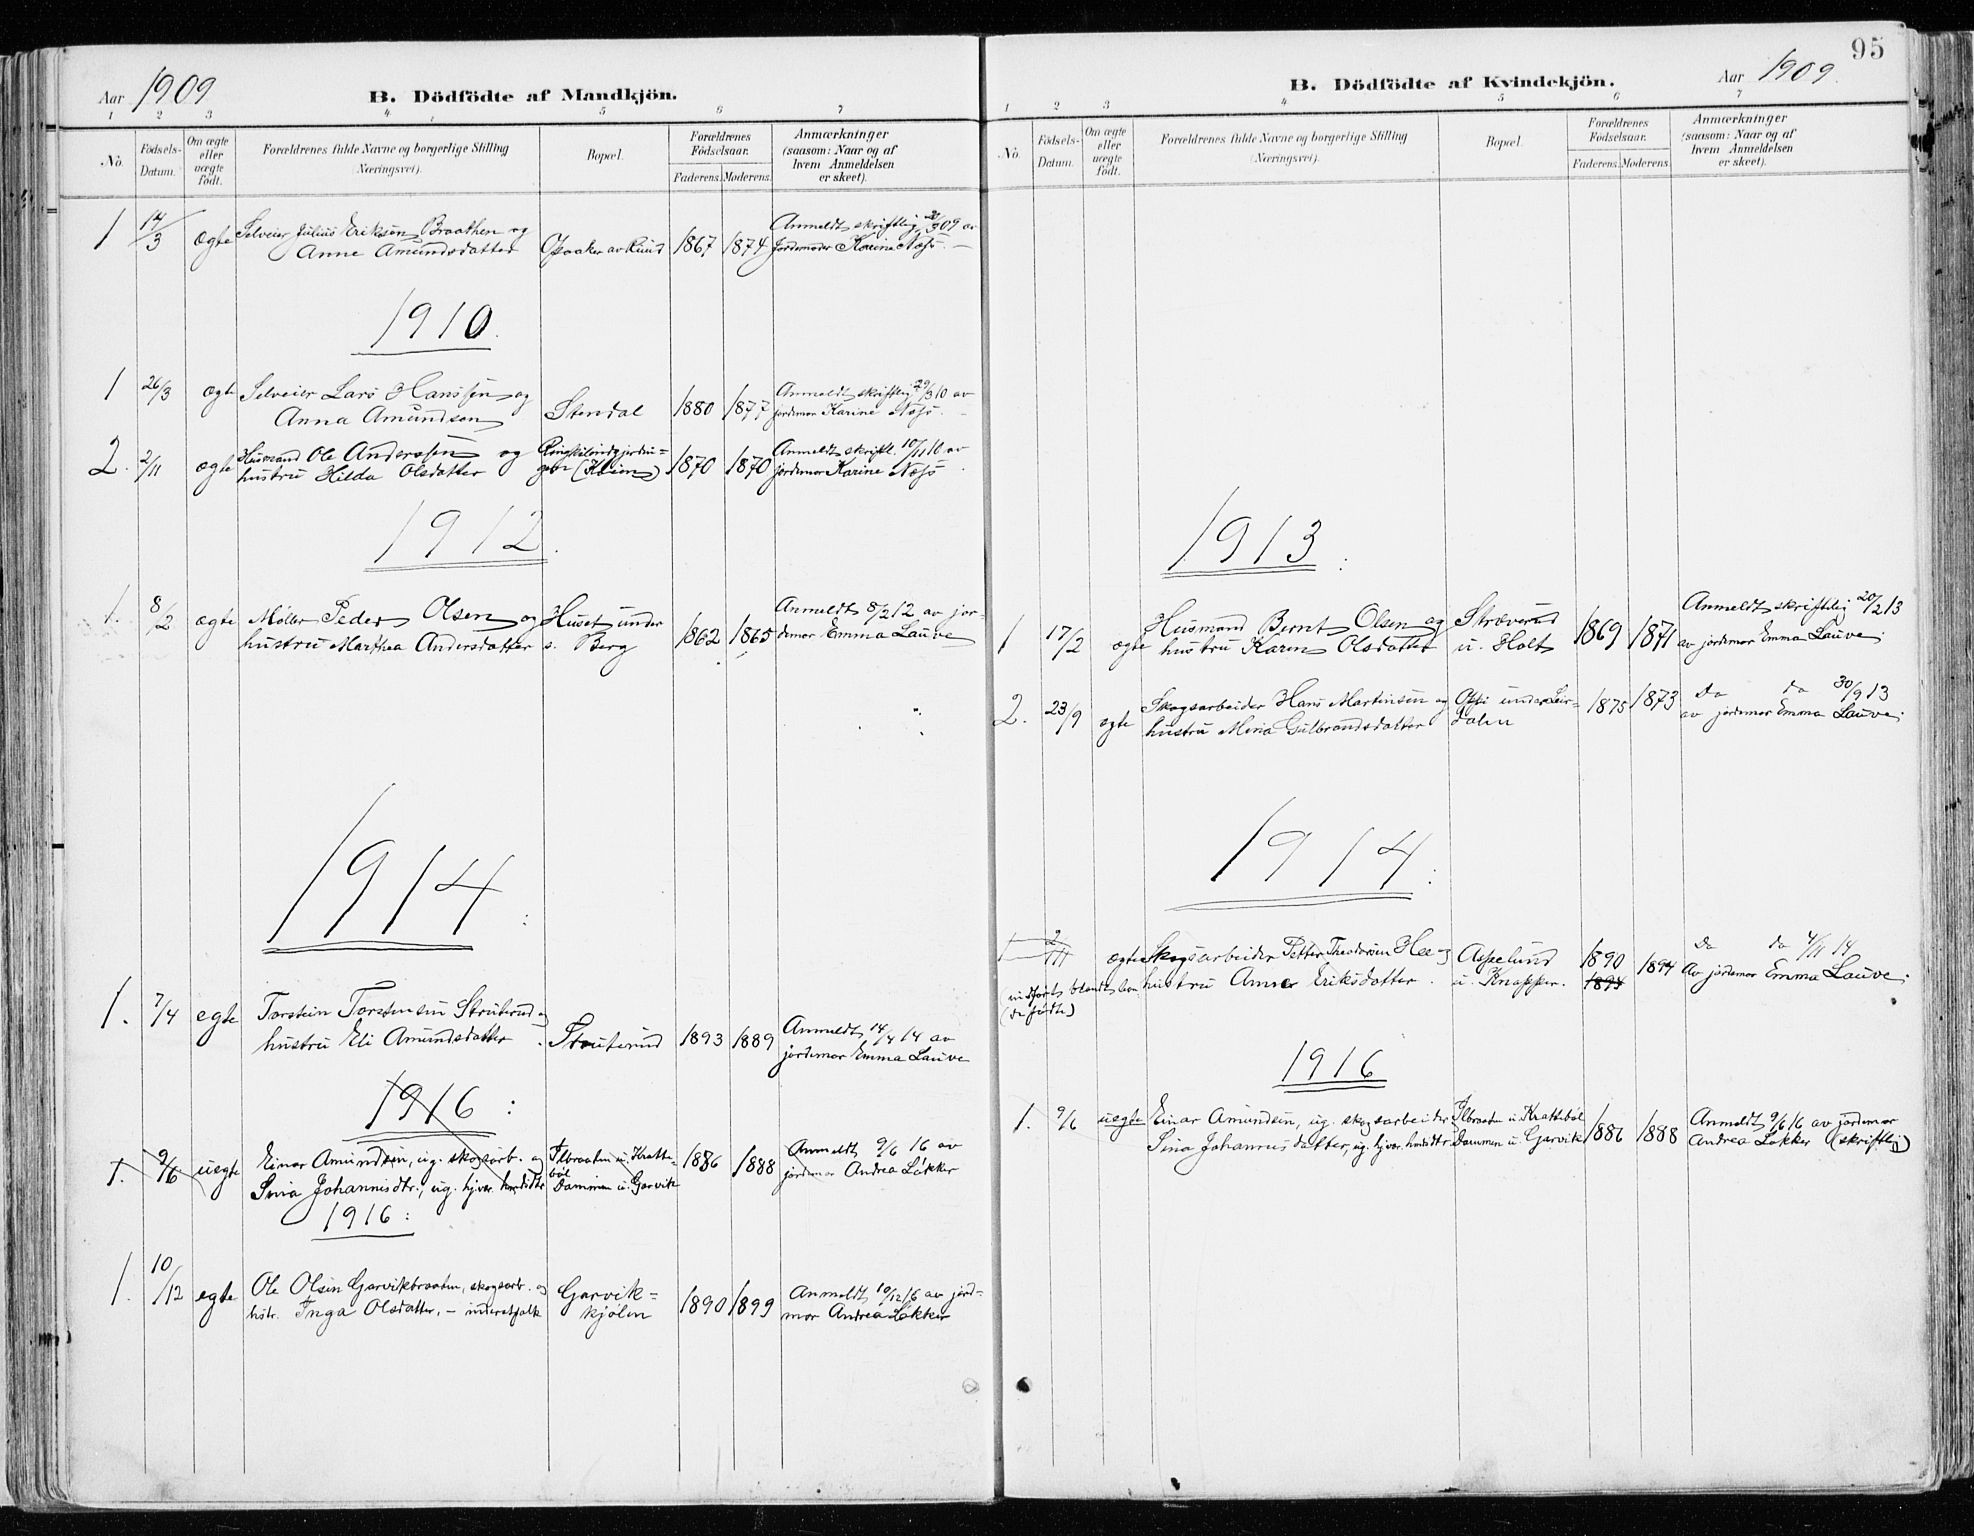 95
Aar 1909
B. Dödfödte af Mandkjön.
1 2 3 4 5 6 7
No.
Födsels-
Datum.
Om ægte
eller
uægte
födt.
Forældrenes fulde Navne og borgerlige Stilling
(Næringsvei).
Bopæl.
Forældrenes
Födselsaar.
Faderens. Moderens.
Anmærkninger
(saasom: Naar og af
hvem Anmeldelsen
er skeet).
1 14/3 ægte Selveier Julius Eriksen Braathen og
Anne Amundsdatter
1867 1874
Anmeldt skriftlig 09 av
Jordemoder Karine Næss.
1910.
1 26/3 ægte Selveier Lars Hanssen og
Anna Amundsen
Stendal
1880 1877
Anmeldt skriftlig 29/3 10 av
jordemor Karine Næss.
2. 2/11 ægte Husmand Ole Anderssen og
hustru Hilda Olsdatter
1870 1870
Anmeldt skriftl. 10/11 10 av
jordemor Karine Næss
1912.
1. 8/2 ægte Møller Peder Olsen og
hustru Marthea Andersdatter
Huset under
s. Berg
1862 1865
Anmeldt 8/2 12 av jor-
demor Emma Lauve
1914:
1. 7/4 egte Torstein Torstensen Struterud og
hustru Eli Amundsdatter
Struterud
1893 1889
Anmeldt 14/4 14 av
jordemor Emma Lauve
1916:
1. 9/6 uegte Einar Amundsen, ug. skogsarb. og
Sina Johannisdtr., ug. hjvær.
Ilbraaten u. Kratte-
bøl
Dammen u. Garvik
1886 1888
Anmeldt 9/6 16 av
jordemor Andrea Løkker
1916:
1. 10/12 egte Ole Olsen Garvikbraaten, skogsarb. og
hstr. Inga Olsdatter, – inderstfolk
Garvik-
kjølen
1890 1899
Anmeldt 10/12 16 av jord-
mor Andrea Løkker
B. Dödfödte af Kvindekjön.
Aar 1909.
1 2 3 4 5 6 7
No.
Födsels-
Datum.
Om ægte
eller
uægte
födt.
Forældrenes fulde Navne og borgerlige Stilling
(Næringsvei).
Bopæl.
Forældrenes
Födselsaar.
Faderens. Moderens.
Anmærkninger
(saasom: Naar og af
hvem Anmeldelsen
er skeet).
1913:
1 17/2 ægte Husmand Bernt Olsen og
hustru Karen Olsdatter
Stræverud
u. Holt
1869 1871
Anmeldt skriftlig 20/2 13
av jordemor Emma Lauve.
2. 23/9 ægte Skogsarbeider Hans Martinsen og
hustru Mina Gulbrandsdatter
under Leir-
dalen
1875 1873
Do do 30/9 13
av jordemor Emma Lauve.
1914:
1 2/11 ægte Skogsarbeider Petter Theodorsen Hee og
hustru Anna Eriksdatter.
Aspelund
u. Knapper.
1890
1894
1894
Do do 4/11 14
Av jordemor Emma Lauve.
(indført blandt leven
de fødte)
1916
1. 9/6 uegte Einar Amundsen, ug. skogsarbeider
Sina Johannesdatter, ug. hjvær.
Ilbraaten u. Krattebøl
Dammen u. Garvik
1886 1888
Anmeldt 9/6 16 av jordemor
Andrea Løkker (skriftlig)